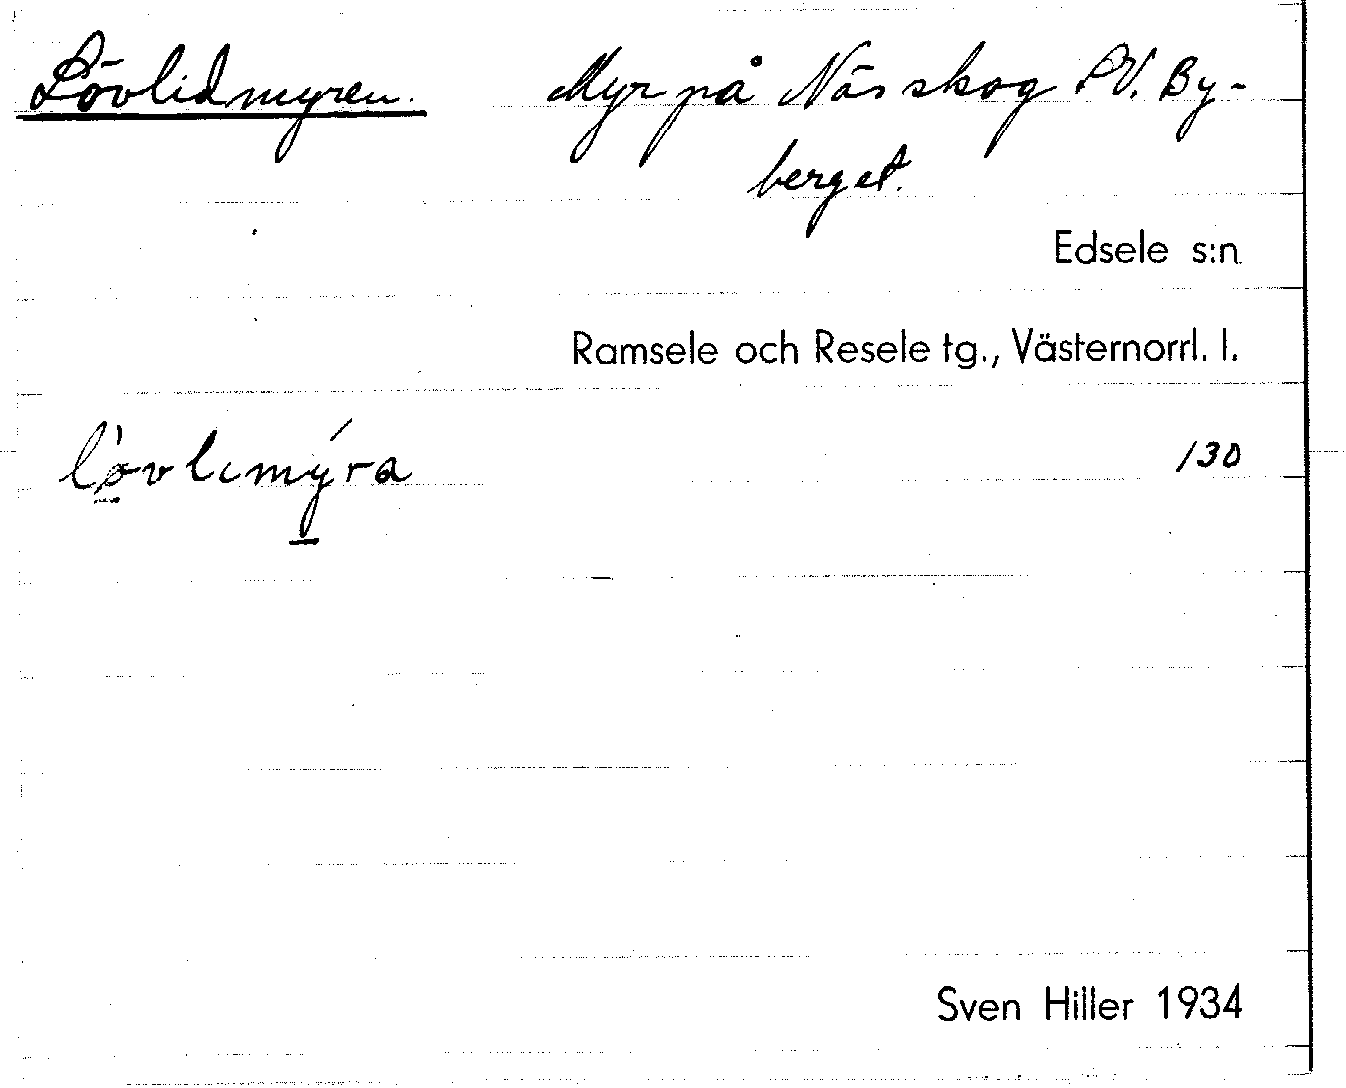 Lövlidmyren. Myr på Näs skog SV. By-
berget.
Edsele s:n
Ramsele och Resele tg., Västernorrl. l.
lövlimýra 130
Sven Hiller 1934